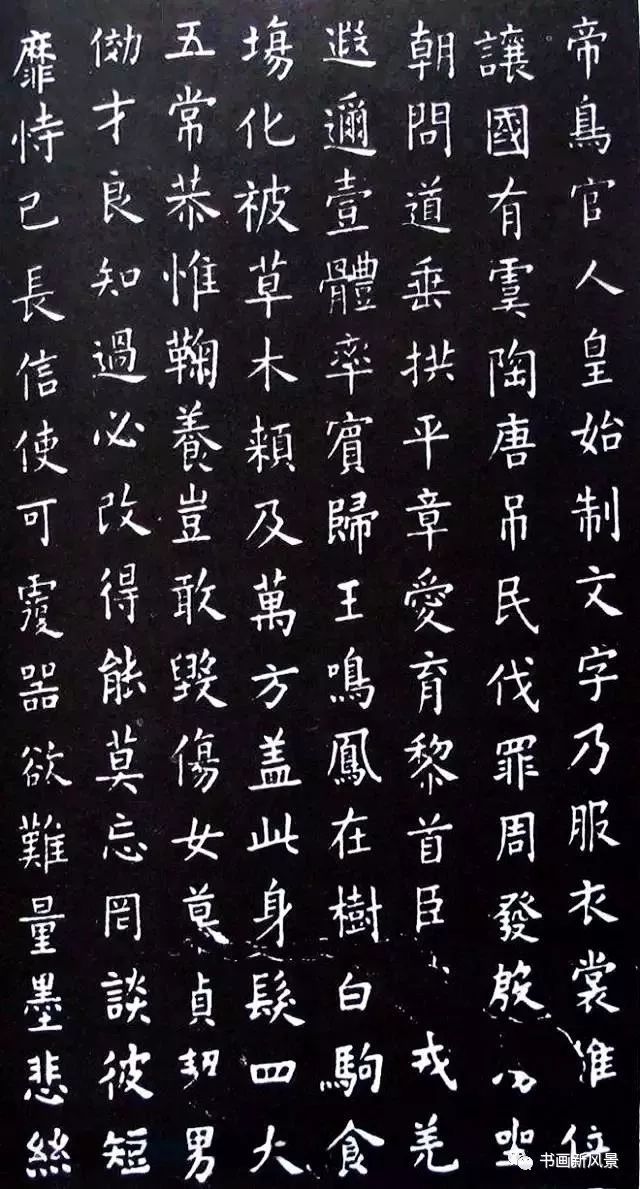 帝鳥官人皇始制文字乃服衣裳推位
讓國有虞陶唐吊民伐罪周發殷坐
朝問道垂拱平章愛育黎首臣戎羌
遐邇壹體率賓歸王鳴鳳在樹白駒食
場化被草木賴及萬方盖此身髮四大
五常恭惟鞠養豈敢毀傷女慕貞絜男
効才良知過必改得能莫忘罔談彼短
靡恃己長信使可覆器欲難量墨悲絲
书画新风景